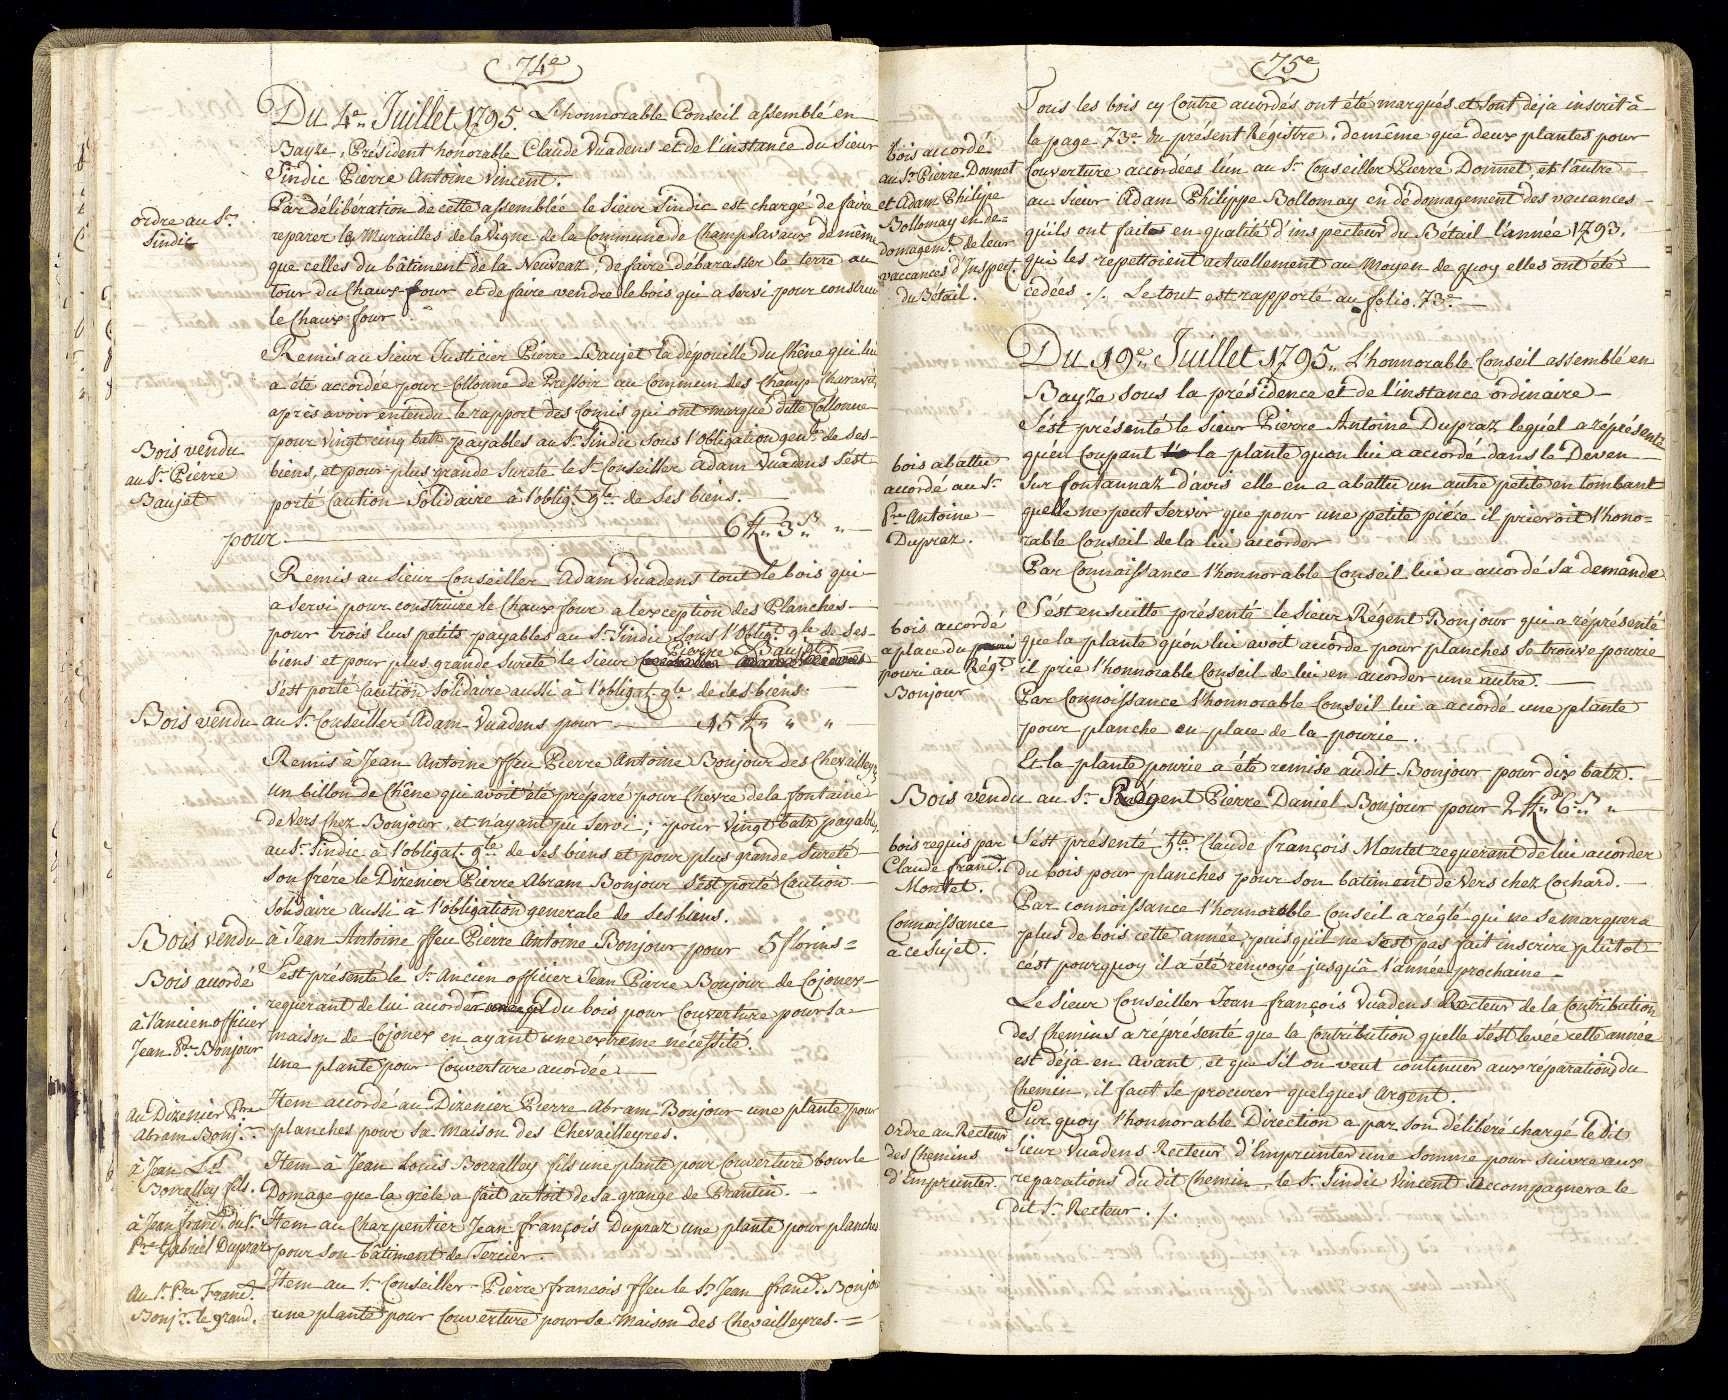 74e
Du 4e Juillet 1795. L'honnorable Conseil assemblé en
Bayze, Président honorable Claude Vuadens et de l'instance du Sieur
Sindic Pierre Antoine Vincent.
ordre au Sr
Sindic
Par déliberation de cette assemblée le Sieur Sindic est chargé de faire
reparer les Murailles de la Vigne de la Commune de Champsavaux de même
que celles du bâtiment de la Neuveaz, de faire débarasser la terre au
tour du Chaux four et de faire vendre le bois qui a servi pour construire
le Chaux four.
Remis au Sieur Justicier Pierre Baujet la dépouille du Chêne qui lui
a été accordée pour Collonne de Pressoir au Commun des Champ-Charavé,
après avoir entendu le rapport des Comis qui ont marqué ditte Collonne
Bois vendu
au Sr Pierre
Baujet
pour vingt cinq batz payables au Sr Sindic sous l'obligation genle de ses
biens, et pour plus grande Sureté le Sr Conseiller adam Vuadens s'est
porté Caution Solidaire à l'obligt gle de ses biens.
pour 6 fl„ 3 s„ „
Remis au Sieur Conseiller Adam Vuadens tout le bois qui
a servi pour construire le Chaux four a lexception des Planches
pour trois Ecus petits payables au Sr Sindic Sous l'Obligt gle de ses
Pierre Baujet
biens et pour plus grande Sureté le Sieur
s'est porté Caution Solidaire aussi à l'obligat. gle de ses biens.
Bois vendu au Sr Conseiller Adam Vuadens pour 15 fl„ „ „
Remis à Jean Antoine ffeu Pierre Antoine Bonjour des Chevailleyres
un billon de Chêne qui avoit été préparé pour Chevre de la fontaine
de Vers Chez Bonjour, et n'ayant pû Servi; pour Vingt batz payables
au Sr Sindic à l'obligat. gle de ses biens et pour plus grande Sureté
son frere le Dizenier Pierre Abram Bonjour s'est porté Caution
Solidaire Aussi à l'obligation generale de ses biens.
Bois vendu à Jean Antoine ffeu Pierre Antoine Bonjour pour 5 florins =
Bois accordé
à l'ancien officier
Jean Pre Bonjour
S'est présenté le Sr Ancien officier Jean Pierre Bonjour de Cojonex
requerant de lui accorder du bois pour Couverture pour sa
maison de Cojonex en ayant une extreme nécéssité.
Une plante pour Couverture accordée
Au Dizenier Pre
Abram Bonjr
Item accordé au Dizenier Pierre Abram Bonjour une plante pour
planches pour sa maison des Chevailleyres.
à Jean Ls
Borralley fils.
Item à Jean Louis Borralley fils une plante pour Couverture pour le
Domage que la grêle a fait au toit de sa grange de Prantin.
à Jean franc. du Sr
Pre Gabriel Dupraz
Item au Charpentier Jean françois Dupraz une plante pour planches
pour son bâtiment de Tercier.
Au Sr Pre Franc.
Bonjr le grand.
Item au Sr Conseiller Pierre francois ffeu le Sr Jean franc. Bonjour
une plante pour Couverture pour sa Maison des Chevailleyres. =
75e
bois accordé
au Sr Pierre Donnet
et Adam Philipe
Bollomay en de=
domagemt de leur
vaccances d'Inspect.
du Bétail.
Tous les bois cy Contre accordés ont été marqués et sont déja inscrit à
la page 73e du présent Régistre, de même que deux plantes pour
Couverture accordées l'un au Sr Conseiller Pierre Donnet, et l'autre
au Sieur Adam Philippe Bollomay en dédomagement des vaccances
qu'ils ont faites en qualité d'inspecteur du Bétail l'année 1793.
qui les repettoient actuellement au Moyen de quoy elles ont été
cedées ./. Le tout est rapporté au folio. 73e
Du 19e Juillet 1795„ L'honnorable Conseil assemblé en
Bayze sous la présidence et de l'instance ordinaire
bois abattu
accordé au Sr
Pre Antoine
Dupraz.
S'ést présenté le Sieur Pierre Antoine Dupraz lequel a réprésenté
qu'en Coupant la plante qu'on lui a accordé dans le Deven
sur fontannaz d'avis elle en a abattu un autre petite en tombant
quelle ne peut servir que pour une petite piéce il prieroit l'hono=
rable Conseil de la lui accorder
Par Connoissance l'honnorable Conseil lui a accordé sa demande
bois accordé
a place du
pouri au Régt
Bonjour
S'ést ensuitte présenté le Sieur Régent Bonjour qui a réprésenté
que la plante qu'on lui avoit accordé pour planches se trouve pourie
il prie l'honnorable Conseil de lui en accorder une autre.
Par Connoissance l'honnorable Conseil lui a accordé une plante
pour planche en place de la pourie.
Et la plante pourie a été remise audit Bonjour pour dix batz.
Bois vendu au Sr Régent Pierre Daniel Bonjour pour 2 fl„ 6 s„ „
bois requis par
Claude franc.
Montet.
S'ést présenté hle Claude françois Montet requerant de lui accorder
du bois pour planches pour son batiment de Vers chez Cochard.
Connoissance
à ce Sujet.
Par connoissance l'honnorable Conseil a réglé qui ne se marquera
plus de bois cette année, puis qu'il ne s'est pas fait inscrire plutot
c'ést pourquoy il a été renvoyé jusqu'à l'année prochaine
Le Sieur Conseiller Jean françois Vuadens Recteur de la Contribution
des Chemins a réprésenté que la Contribution quelle s'ést levée cette année
est déja en Avant, et que s'il on veut continuer aux réparations du
Chemin, il faut se procurer quelques Argent.
ordre au Recteur
des Chemins
d'Emprunter.
Sur quoy l'honnorable Direction a par son délibéré chargé le dit
Sieur Vuadens Recteur d'Emprunter une Somme pour suivre aux
reparations du dit Chemin, le Sr Sindic Vincent Accompagnera le
dit Sr Recteur ./.